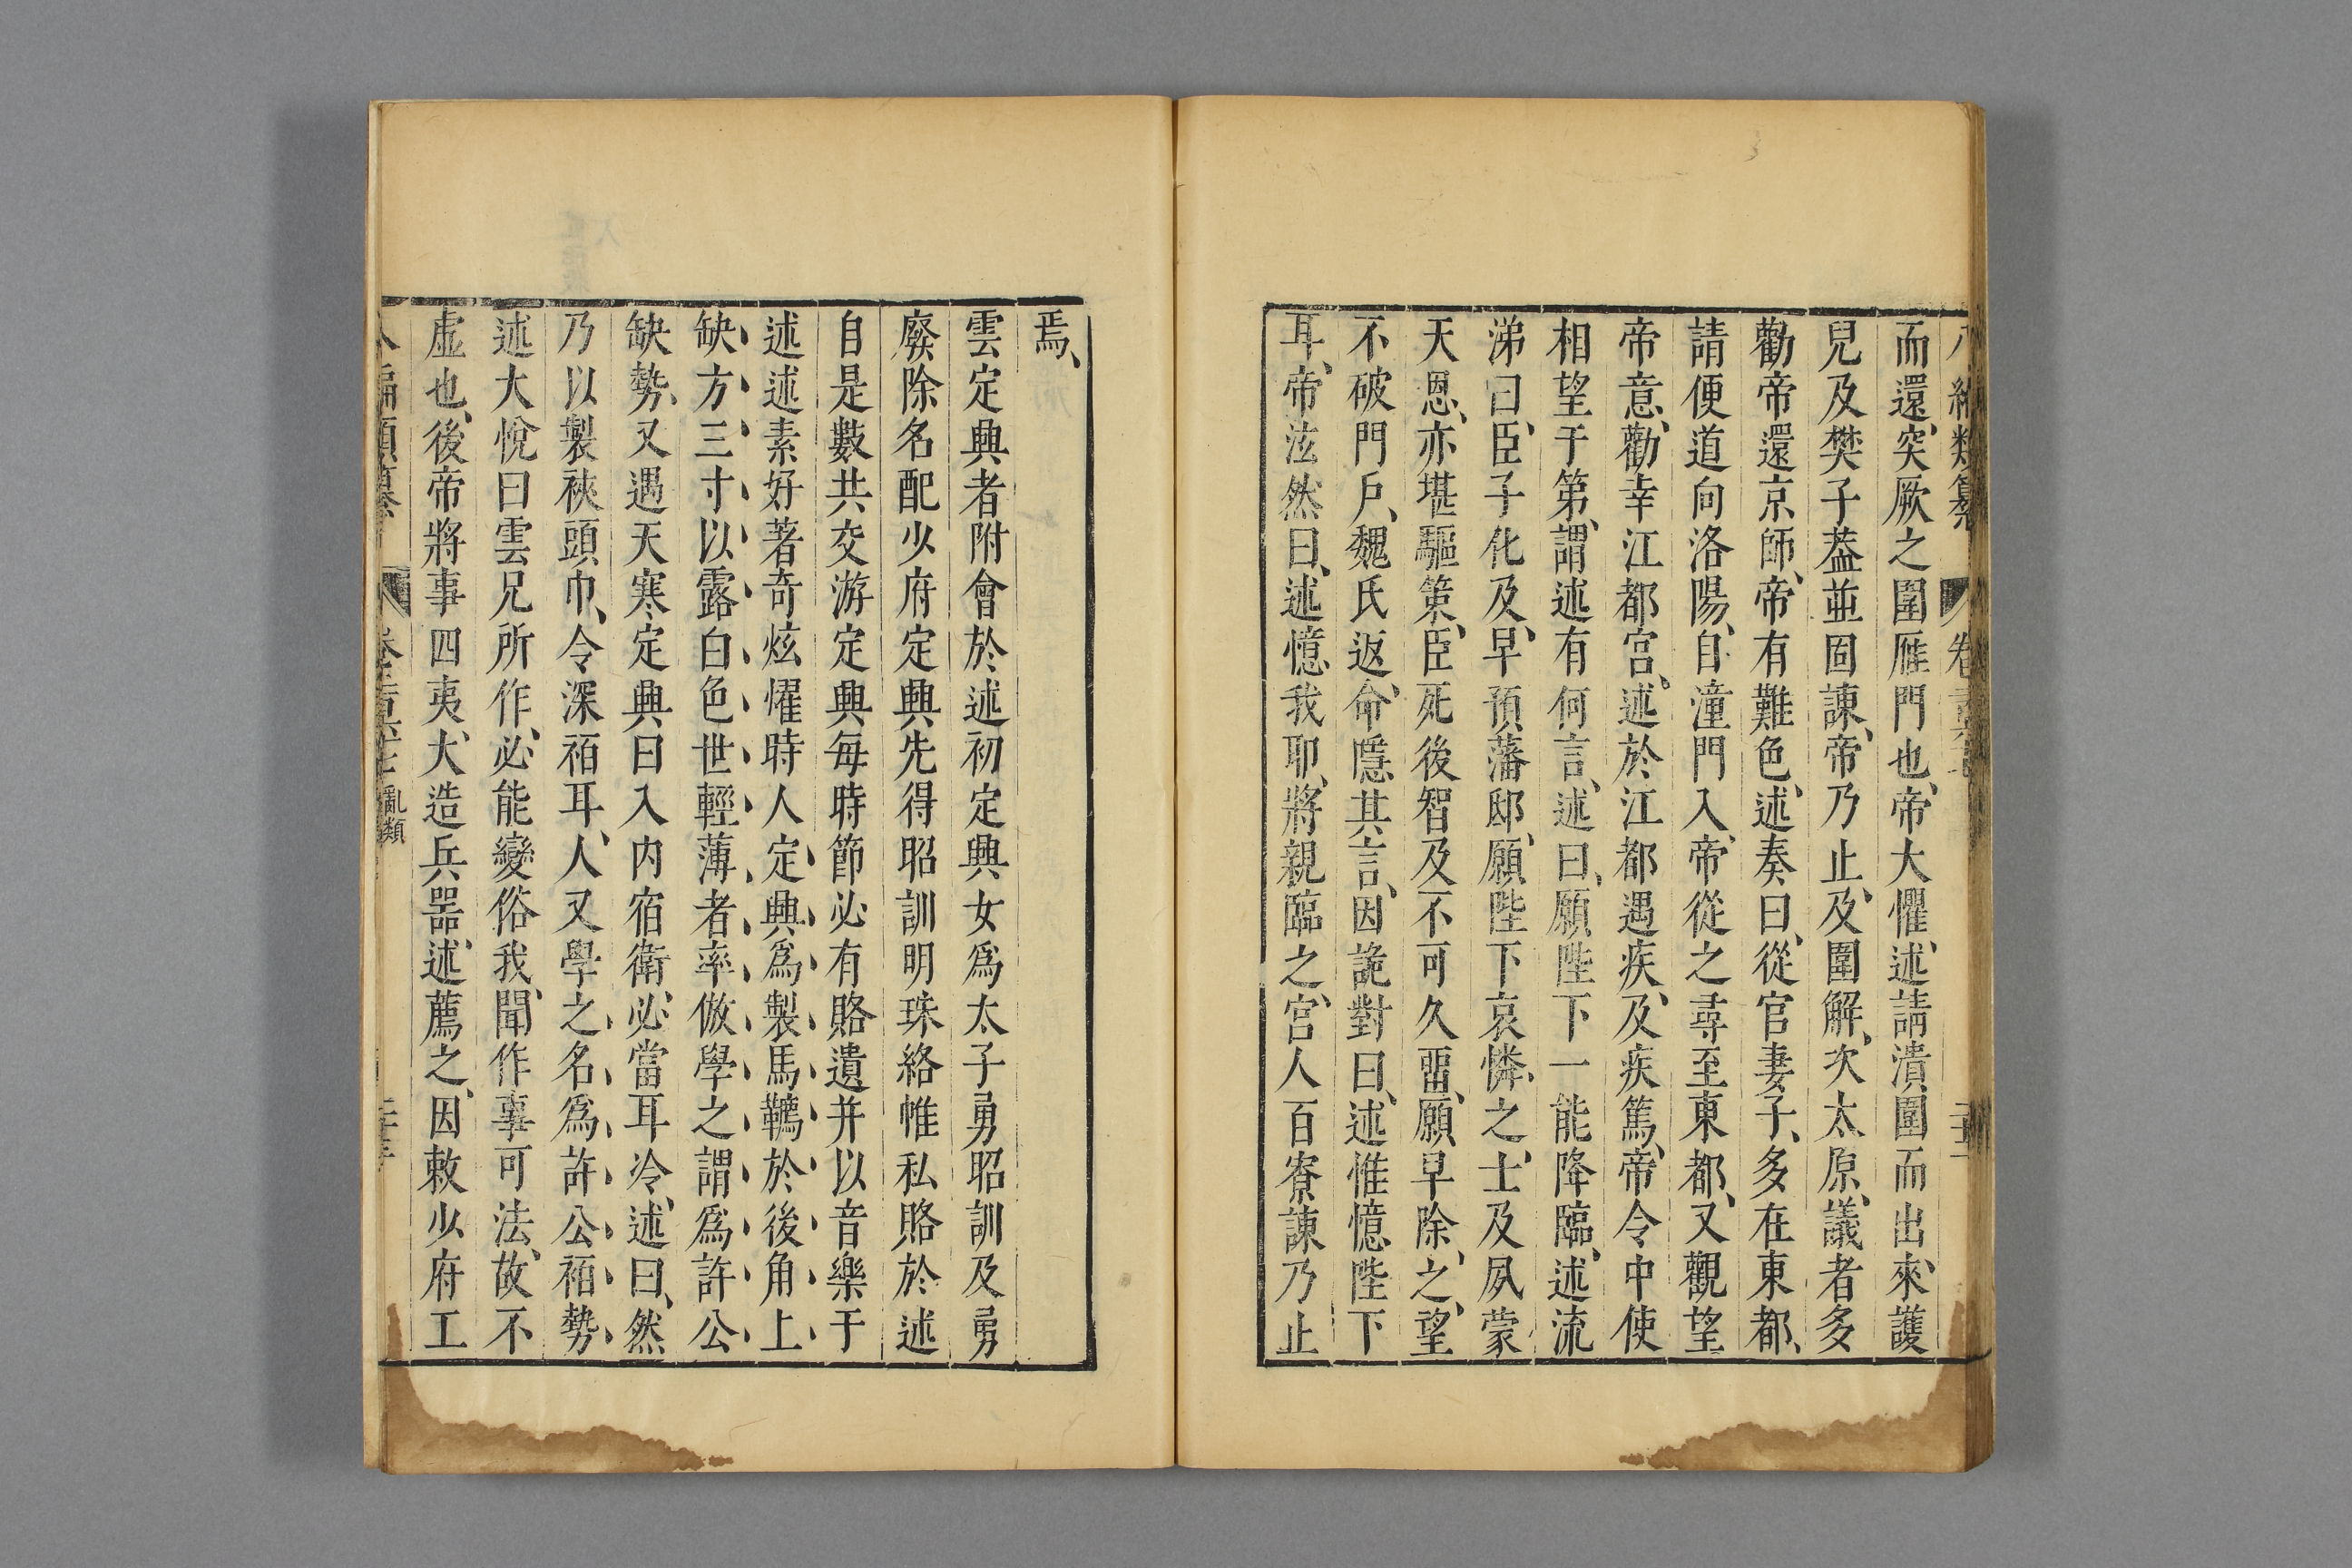 編類纂 卷
而還、突厥之圍雁門也、帝大懼、述請潰圍而出、來護
兒及樊子葢並固諫、帝乃止、及圍解、次太原、議者多
勸帝還京師、帝有難色、述奏曰、從官妻子、多在東都、
請便道向洛陽、自潼門入、帝從之尋至東都、又觀望
帝意、勸幸江都宮、述於江都遇疾、及疾篤、帝令中使
相望于第、謂述有何言、述曰、願陛下一能降臨、述流
涕曰、臣子化及、早預藩邸、願陛下哀憐之、士及夙蒙
天恩、亦堪驅策、臣死後智及不可久畱、願早除之、望
不破門戶、魏氏返命、隱其言、因詭對曰、述惟憶陛下
耳、帝泫然曰、述憶我耶、將親臨之、宮人百寮諫乃止
焉、
雲定興者附會於述初定興女爲太子勇昭訓及勇
廢除名配少府定興先得昭訓明珠絡帷私賂於述
自是數共交游定興每時節必有賂遺并以音樂于
述述素好著奇炫燿時人定興爲製馬韉於後角上
缺方三寸以露白色世輕薄者率倣學之謂爲許公
缺勢、又遇天寒定興曰入內宿衛、必當耳冷、述曰、然
乃以製裌頭巾、令深袹耳、人又學之名爲許公袹勢
述大悅曰雲兄所作、必能變俗我、聞作事可法、故不
虛也、後帝將事四夷、大造兵器、述薦之、因敕少府工
編類纂 卷二百六十七 亂類